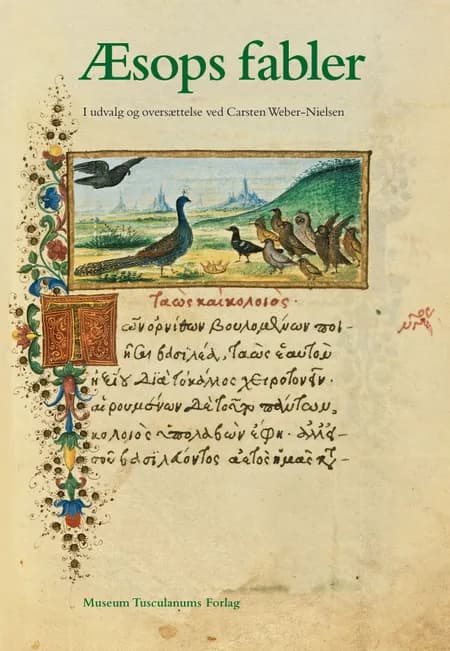 Æsops fabler
I udvalg og oversættelse ved Carsten Weber-Nielsen
Ταὼς καὶ κολοιός.
Τῶν ὀρνίθων βουλομένων ποι-
ῆσαι βασιλέα, ταὼς ἑαυτὸν
ἠξίου διὰ τὸ κάλλος χειροτονεῖν.
αἱρουμένων δὲ τοῦτον πάντων,
κολοιὸς ὑπολαβὼν ἔφη. ἀλλ' εἰ
σοῦ βασιλεύοντος ἀετὸς ἡμᾶς
Museum Tusculanums Forlag